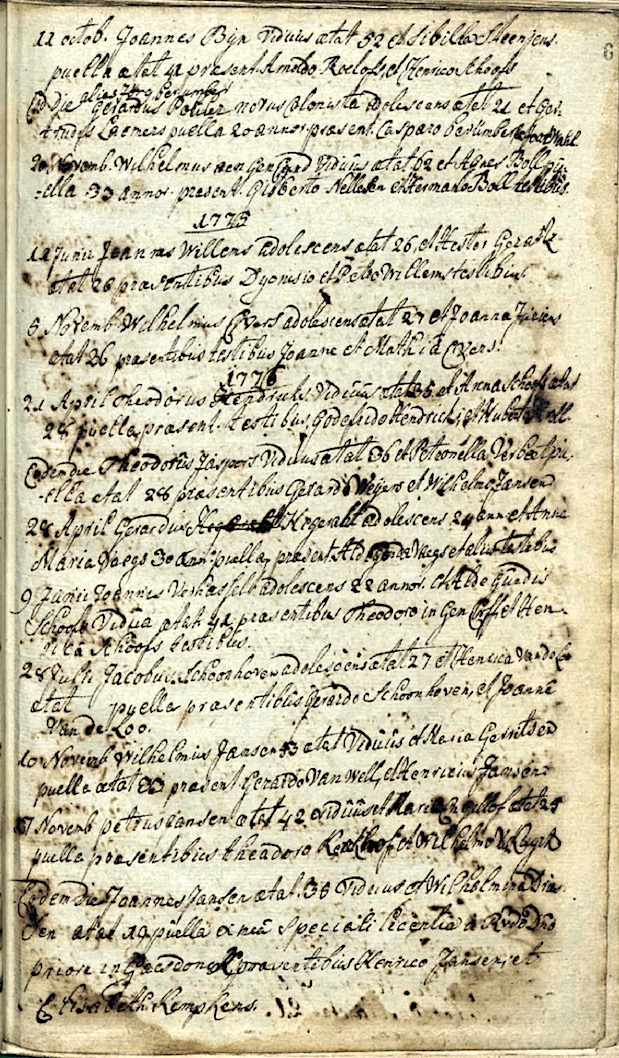 6
11 octob. Joannes Bijn viduus aetat 52 et Sibilla Steenjens
puella aetat 41 present. Arnoldo Roelofs et Henrico Schoofs
alias
Eod die Gerardus novus Colonista adolescens aetat 21 et Ger-
trudis Laemers puella 20 annor. praesent. Casparo
20 Novemb. Wilhelmus aen Gen viduus aetat 62 et Agnes Boll pu-
-ella 33 annor. present. Gisberto Nellesen et Hermano Boll testibus
1775
12 Junii Joannes Willems adolescens aetat 26, et Hester
aetat 26 praesentibus Dyonisio et Petro Willems testibus
5 Novemb Wilhelmus Evers adolescens aetat 27 et Joanna
aetat 26 praesentibus testibus Joanne et Mathia Evers.
1776
21 April Theodorus Hendricks viduus aetat 35 et Anna Schoofs aetat
28 puella present. testibus Godefrido Hendricks et
Eodem die Theodorus Jaspers viduus aetat 36 et Petronella Verbeet pu-
-ella aetat 28 praesentibus Gerardo Weyers et Wilhelmo Jansen
28 April Gerardus adolescens 24 ann et Anna
Maria Vaegs 30 ann puella, present. et testibus
9 Junii Joannes Verhasselt adolescens 22 annor. et Aldegundis
Schoofs vidua aetat. 42 praesentibus Theodoro in Gen et Hen-
rica Schoofs testibus.
28 Julii Jacobus Schoonhoven adolescens aetat 27 et Henrica Van de Lo
aetat puella praesentibus Gerardo Schoonhoven, et Joanna
Van de Loo.
10 Novemb Wilhelmus Jansen 53 aetat viduus et Maria Gerritsen
puella aetat 33 present Gerardo Van Well, et Henricus Jansen
Novemb petrus Jansen aetat 42 viduus et Maria aetat 24
puella praesentibus theodoro et Wilhelmo
Eodem die Joannes Jansen aetat. 36 viduus et Wilhelmina Dris-
sen aetat 19 puella ex mea speciali licentia a Rvdo Dno
priore in Gaesdonck praesentibus Henrico Jansen, et
Elisabeth Kempkens. 12